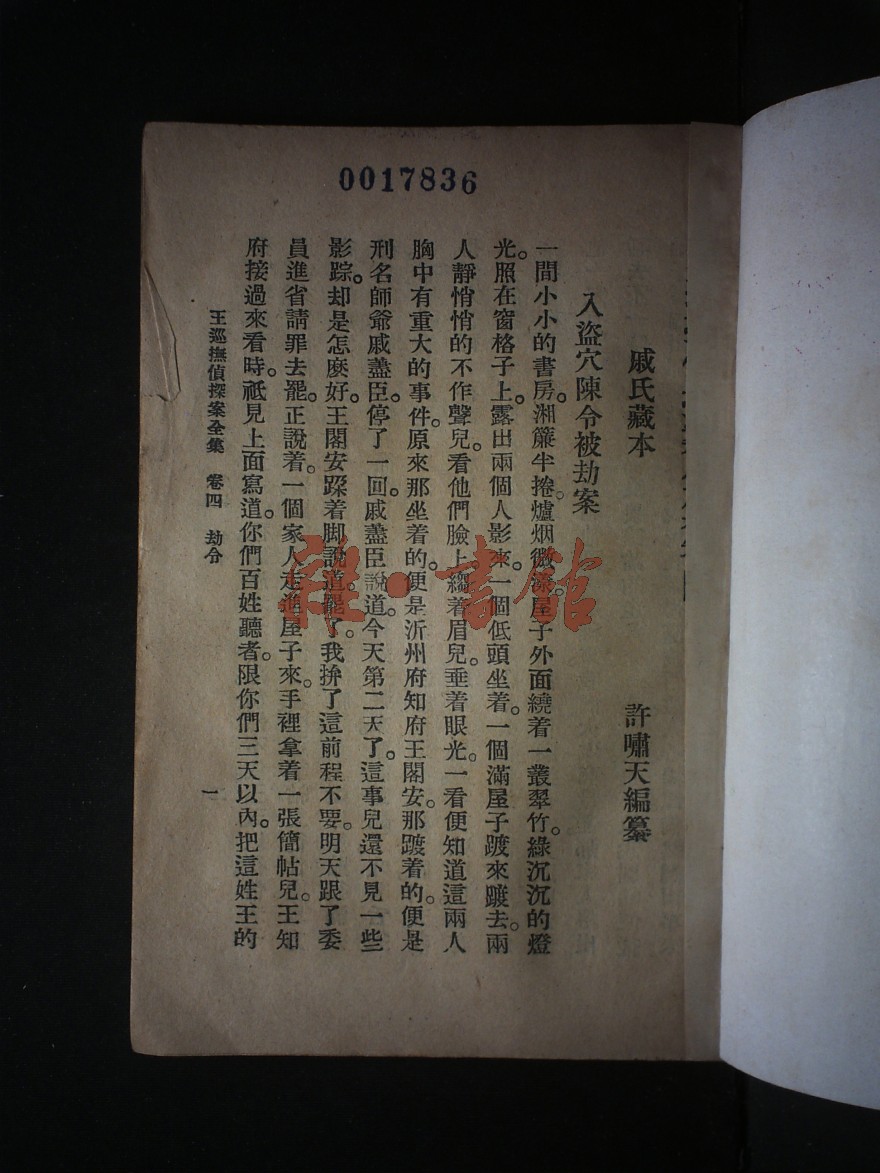 0017836
戚氏藏本
許嘯天編纂
入盜穴陳令被劫案
一間小小的書房。湘簾半捲。爐烟微裊。屋子外面繞着一叢翠竹。綠沉沉的燈
光。照在窗格子上。露出兩個人影來。一個低頭坐着。一個滿屋子踱來踱去。兩
人靜悄悄的不作聲兒。看他們臉上。縐着眉兒。垂着眼光。一看便知道這兩人
胸中有重大的事件。原來那坐着的。便是沂州府知府王閣安。那踱着的。便是
刑名師爺戚藎臣。停了一回。戚藎臣說道。今天第二天了。這事兒還不見一些
影踪。却是怎麽好。王閣安蹀着脚說道。罷了。我拚了這前程不要。明天跟了委
員進省請罪去罷。正說着。一個家人走進屋子來。手裡拿着一張簡帖兒。王知
府接過來看時。祗見上面寫道。你們百姓聽者。限你們三天以內。把這姓王的
王巡撫偵探案全集 卷四 劫令
一
雜·書館